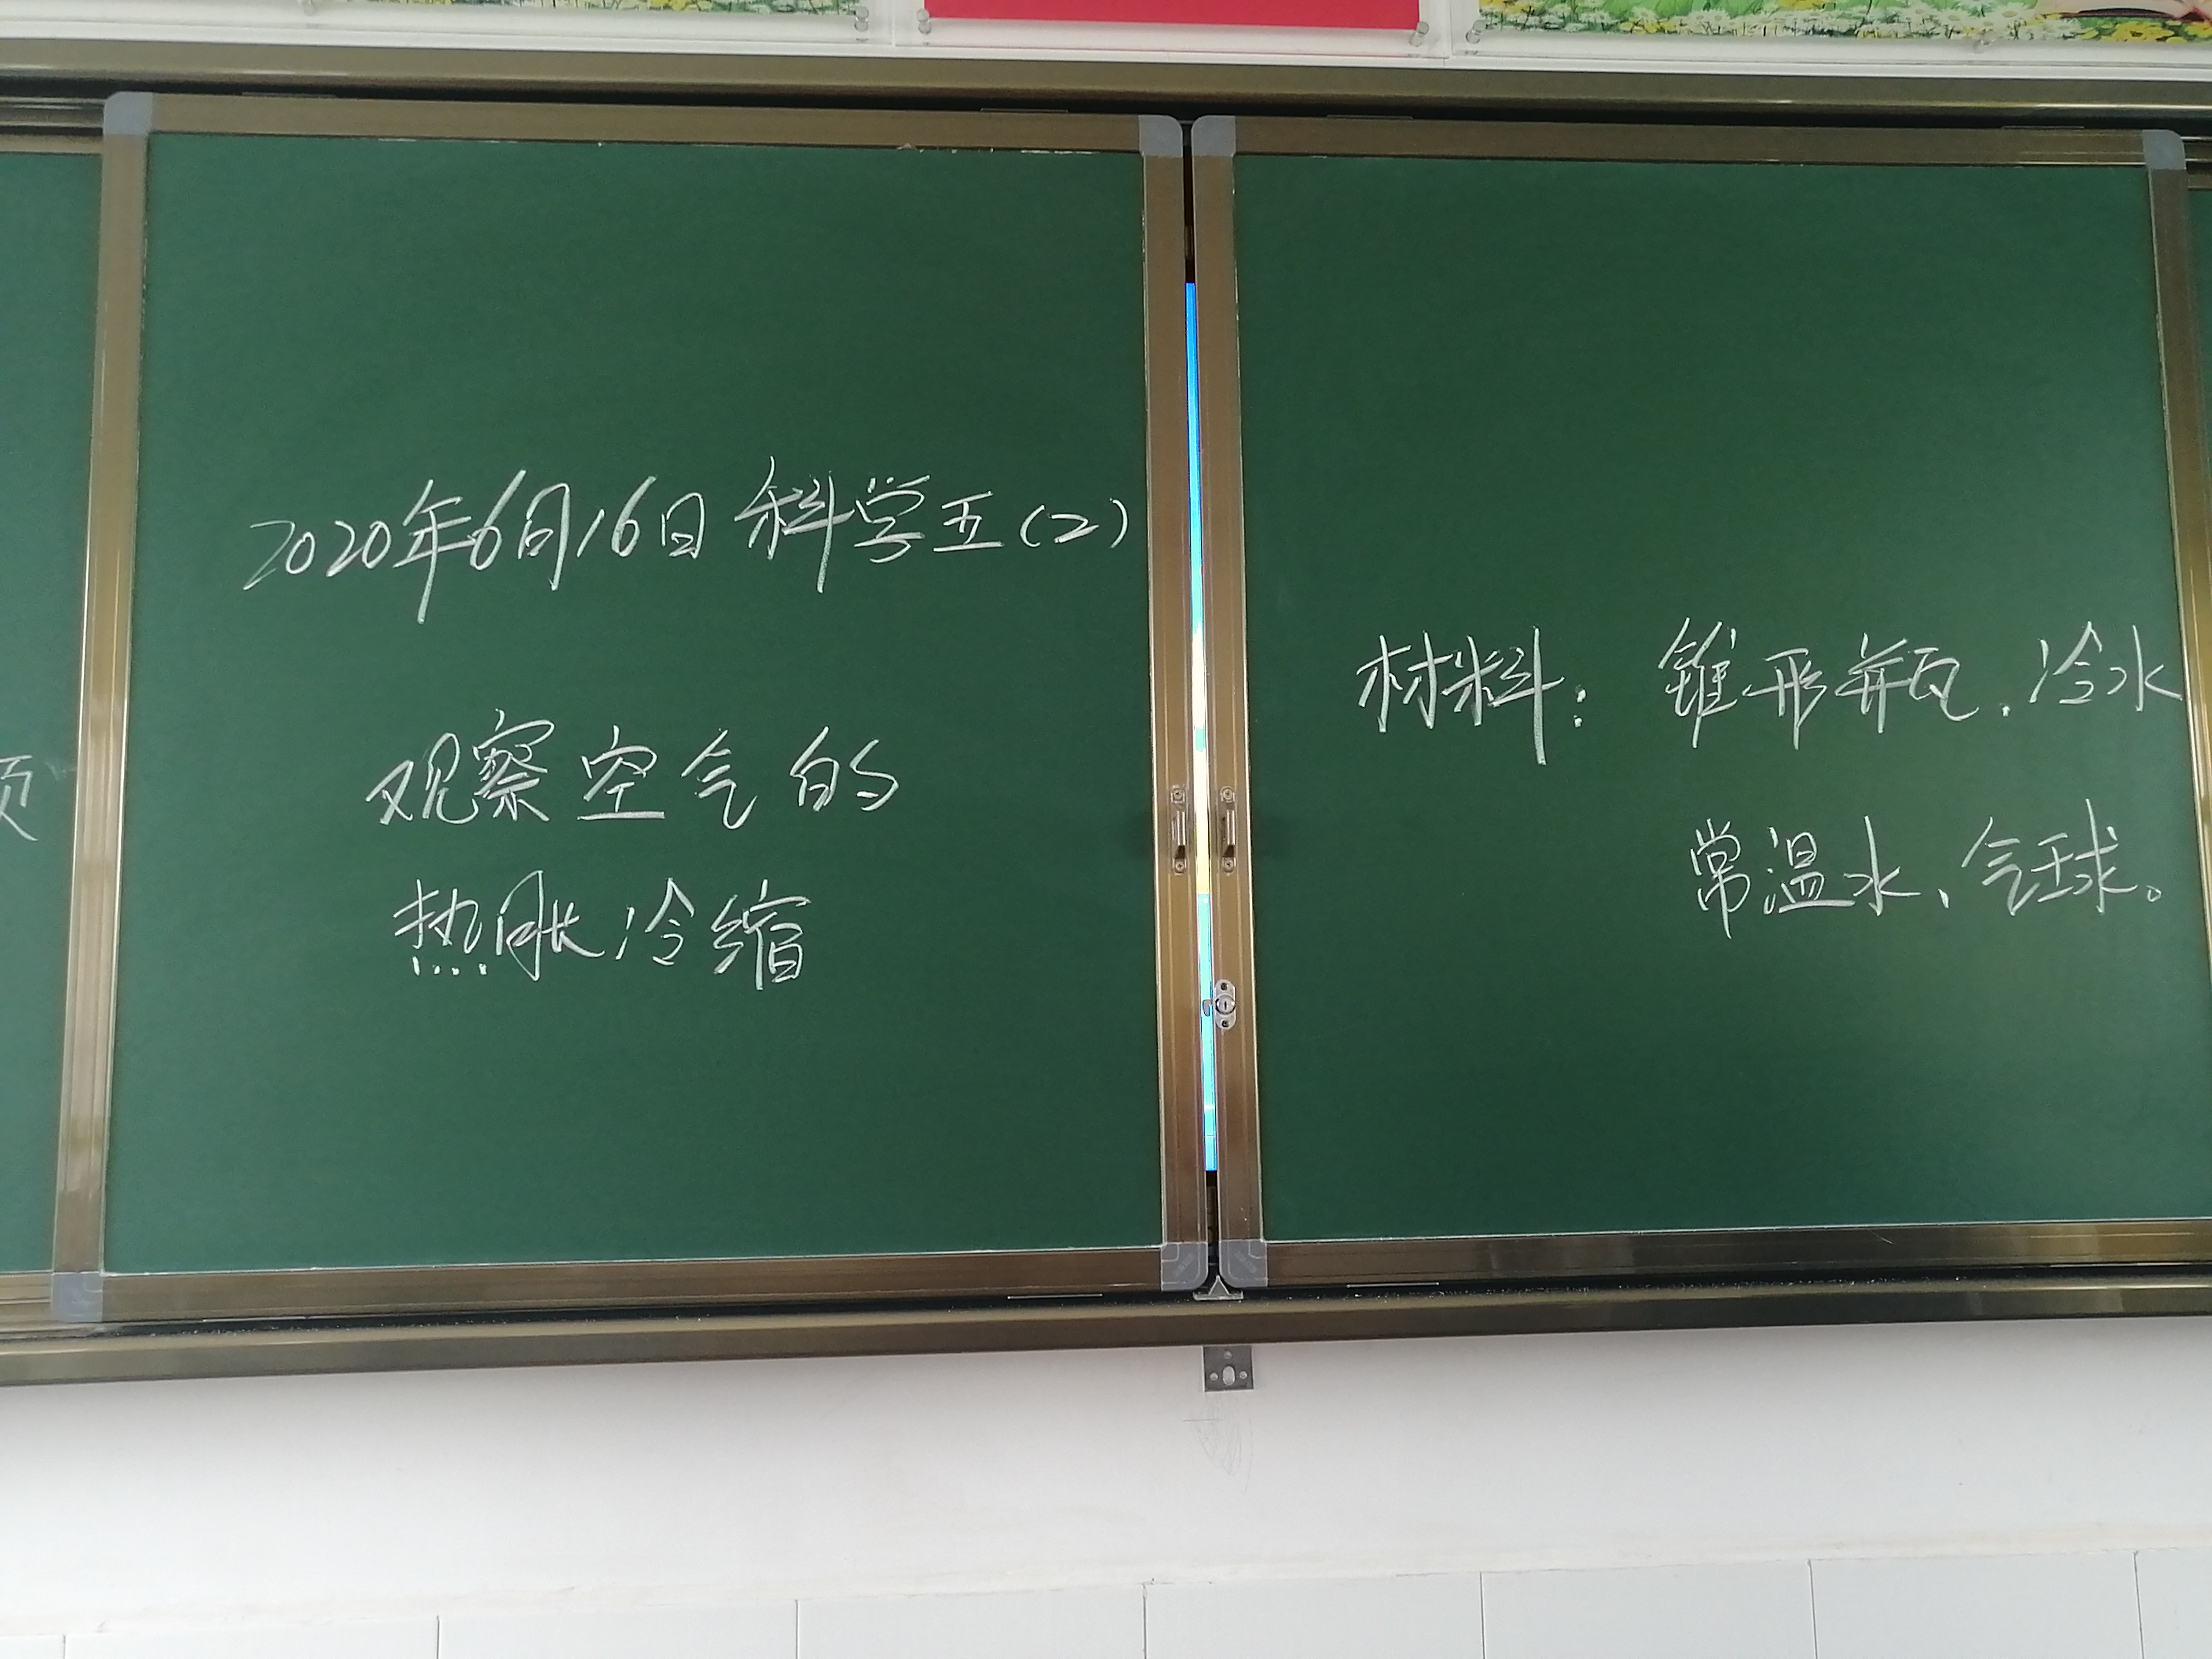 2020年6月16日 科学五(2)
观察空气的
热胀冷缩
材料: 锥形瓶、冷水
常温水、气球。